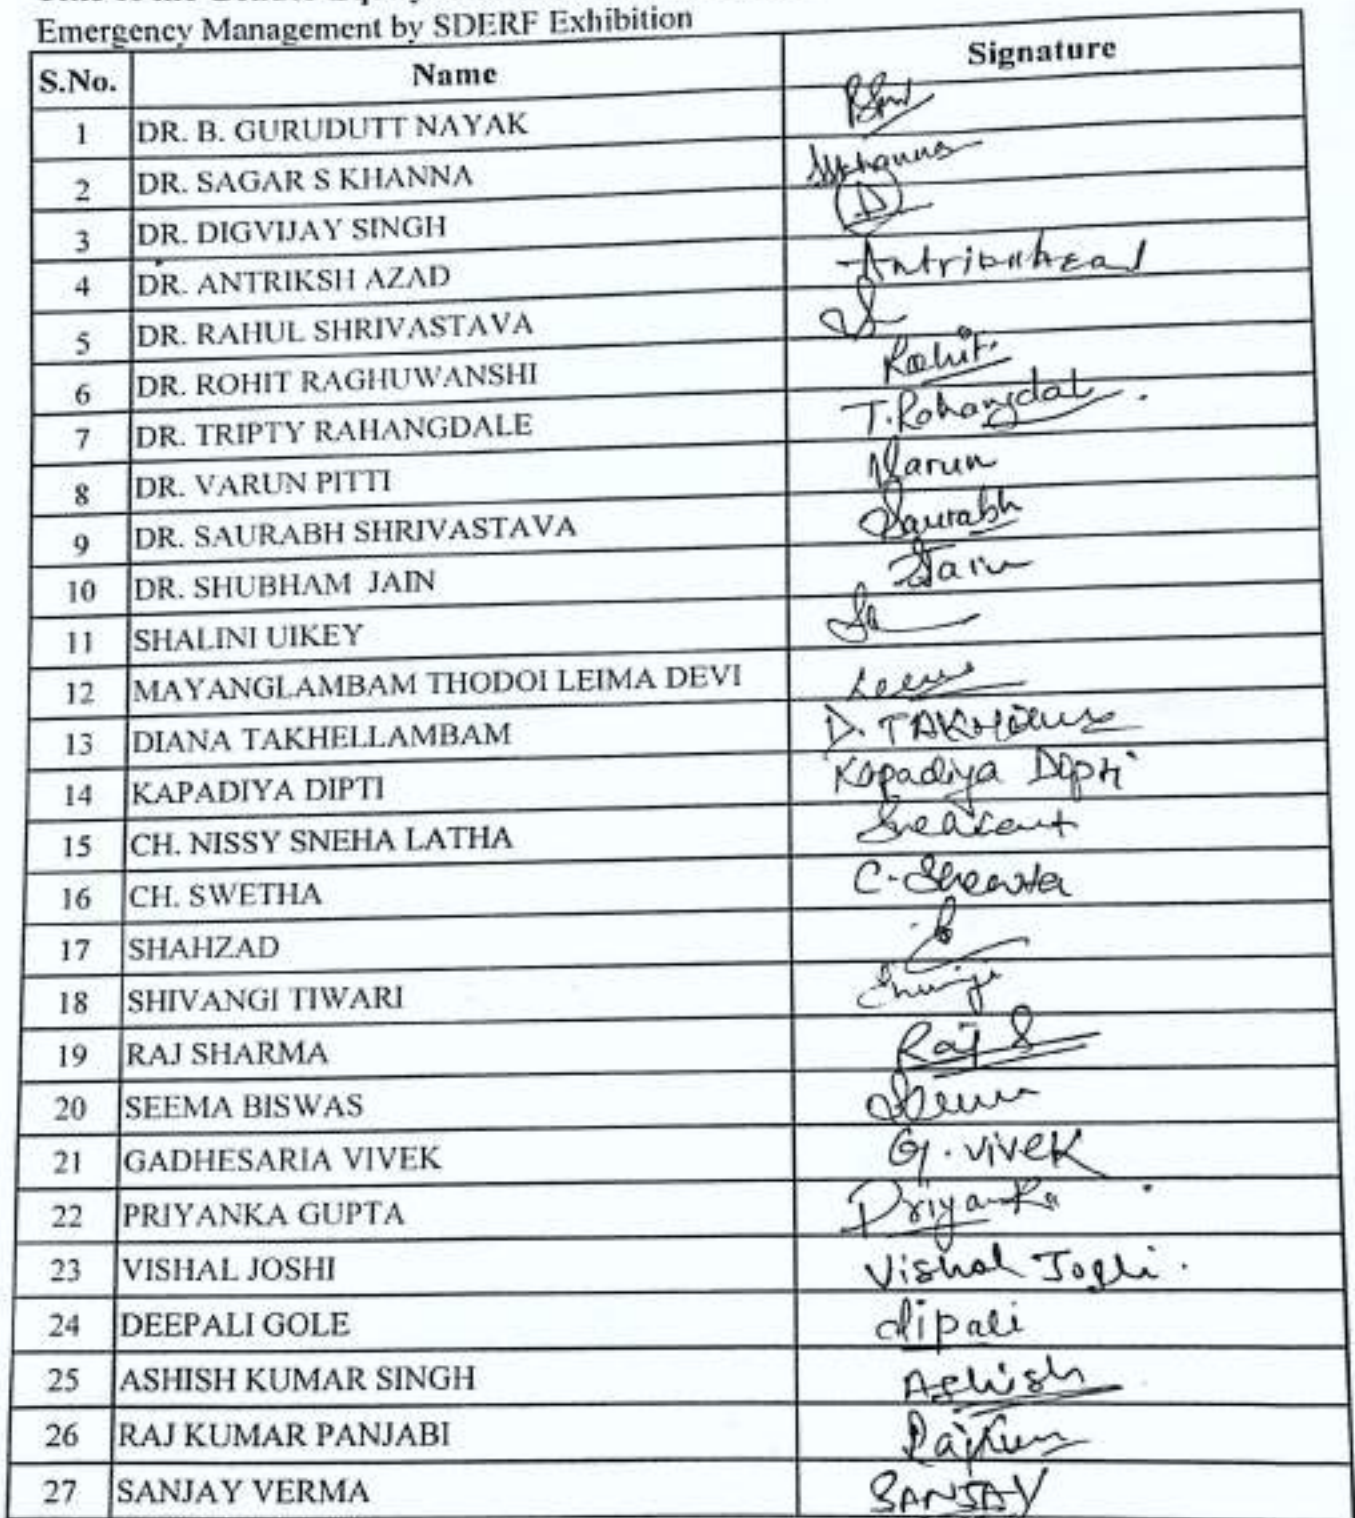 Emergency Management by SDERF Exhibition
S.No. Name Signature
1 DR. B. GURUDUTT NAYAK
2 DR. SAGAR S KHANNA
3 DR. DIGVIJAY SINGH D
4 DR. ANTRIKSH AZAD
5 DR. RAHUL SHRIVASTAVA
6 DR. ROHIT RAGHUWANSHI Rohit
7 DR. TRIPTY RAHANGDALE T. Rahangdal
8 DR. VARUN PITTI Varun
9 DR. SAURABH SHRIVASTAVA Saurabh
10 DR. SHUBHAM JAIN Jain
11 SHALINI UIKEY
12 MAYANGLAMBAM THODOI LEIMA DEVI
13 DIANA TAKHELLAMBAM
14 KAPADIYA DIPTI Kapadiya Dipti
15 CH. NISSY SNEHA LATHA
16 CH. SWETHA
17 SHAHZAD
18 SHIVANGI TIWARI
19 RAJ SHARMA Raj S
20 SEEMA BISWAS
21 GADHESARIA VIVEK G. VIVEK
22 PRIYANKA GUPTA Priyanka
23 VISHAL JOSHI Vishal Joshi.
24 DEEPALI GOLE dipali
25 ASHISH KUMAR SINGH Ashish
26 RAJ KUMAR PANJABI
27 SANJAY VERMA SANJAY